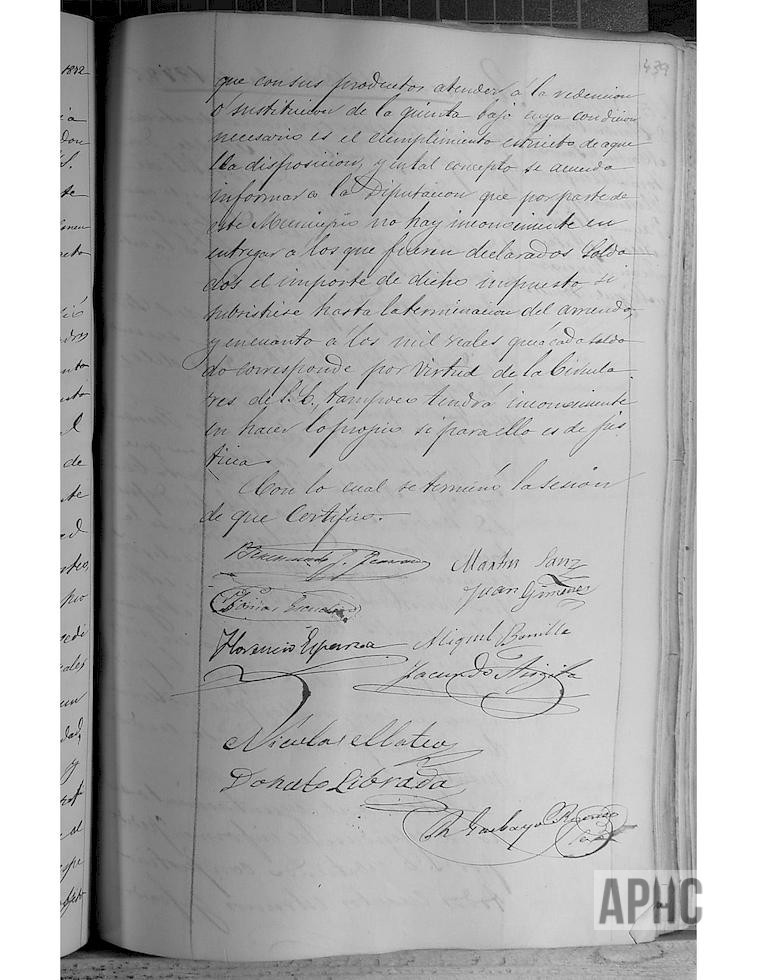 439
que con sus productos atender á la redencion
ó sustitucion de la quinta bajo cuya condicion
necesario es el cumplimiento estricto de aque
lla disposicion, y en tal concepto se acuerda
informar á la Diputacion que por parte de
este Municipio no hay inconveniente en
entregar á los que fueren declarados Solda
dos el importe de dicho impuesto, si
subsistiese hasta la terminacion del arriendo,
y en cuanto á los mil reales que á cada solda
do corresponde por virtud de la Circula
res de S. E., tampoco tendrá inconveniente
en hacer lo propio si para ello es de jus
ticia.
Con lo cual se terminó la sesión
de que Certifico.
Martin Sanz
Juan Gimenez
Florencio Esparza
Miguel Bonilla
Facundo
Nicolas Mateo
Donato Librada
1872
APHC